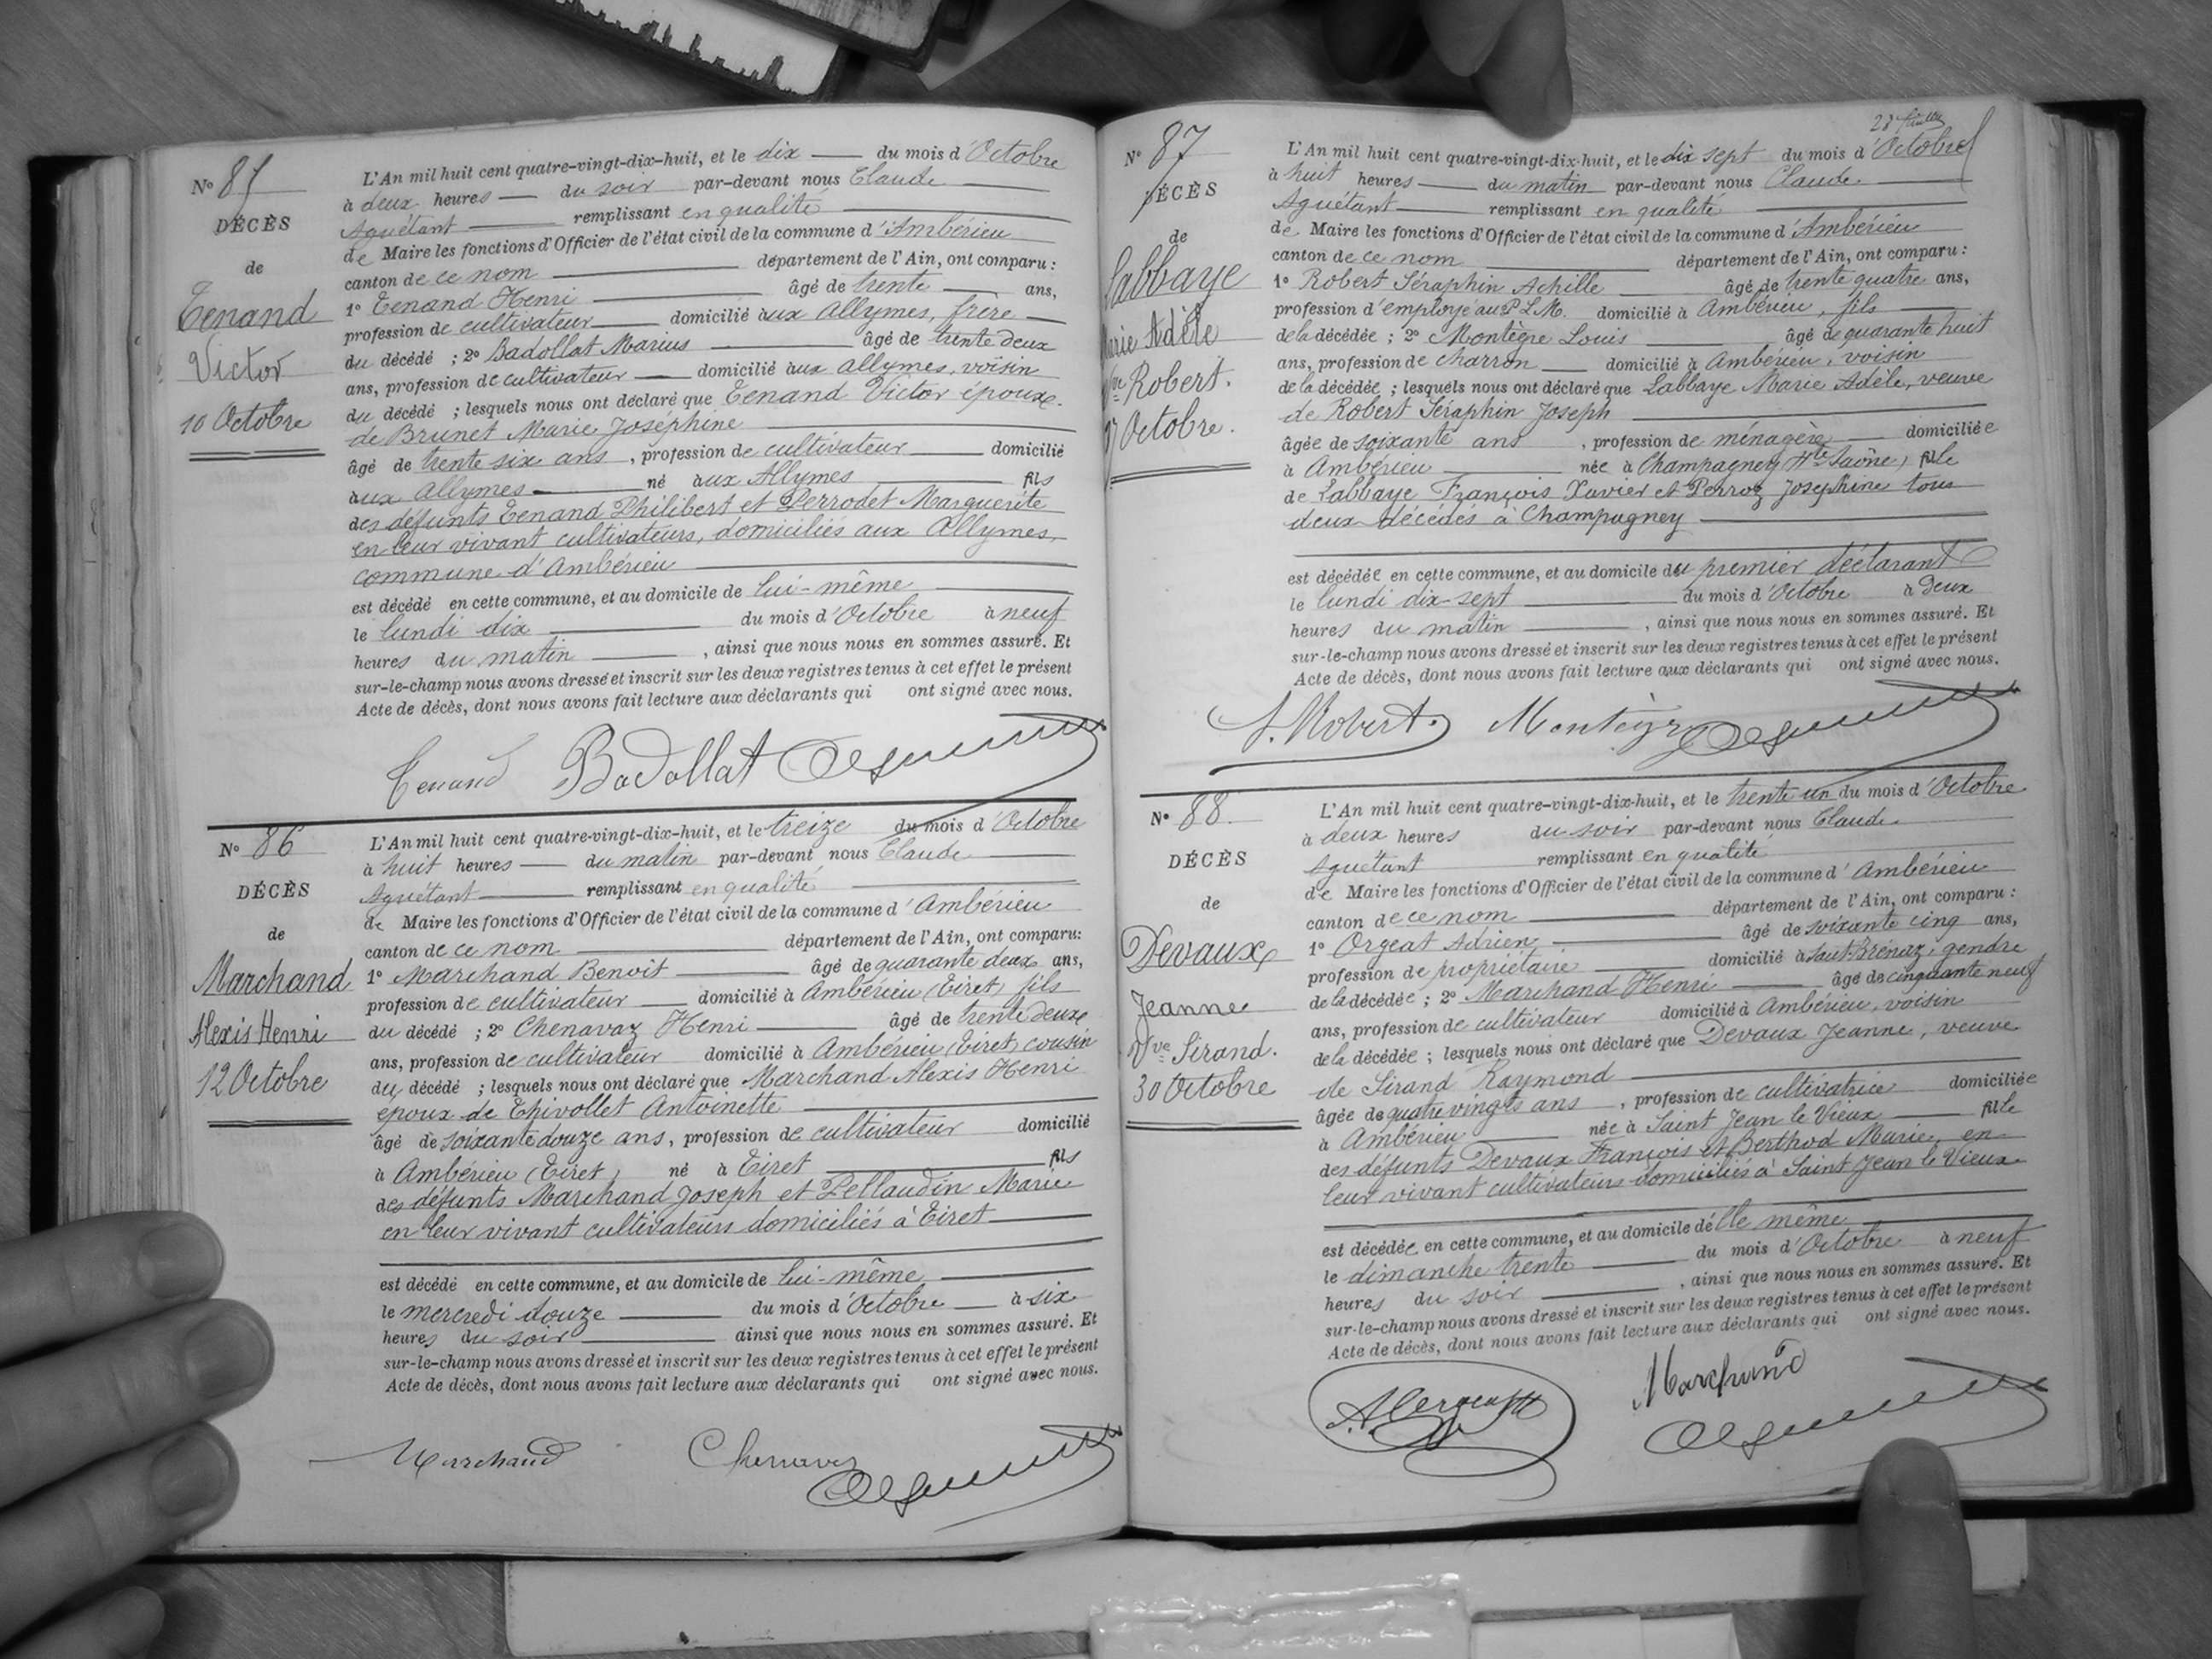 N° 85
DÉCÈS
de
Tenand
Victor
10 Octobre
L'An mil huit cent quatre-vingt-dix-huit, et le dix du mois d'Octobre
à deux heures du soir par-devant nous Claude
Aguétant remplissant en qualité
de Maire les fonctions d'Officier de l'état civil de la commune d'Ambérieu
canton de ce nom département de l'Ain, ont comparu :
1° Tenand Henri âgé de trente ans,
profession de cultivateur domicilié aux Allymes, frère
du décédé ; 2° Badollat Marius âgé de trente deux
ans, profession de cultivateur domicilié aux Allymes, voisin
du décédé ; lesquels nous ont déclaré que Tenand Victor époux
de Brunet Marie Joséphine
âgé de trente six ans, profession de cultivateur domicilié
aux Allymes né aux Allymes fils
des défunts Tenand Philibert et Perrodet Marguerite
en leur vivant cultivateurs, domiciliés aux Allymes,
commune d'Ambérieu
est décédé en cette commune, et au domicile de lui-même
le lundi dix du mois d'Octobre à neuf
heures du matin, ainsi que nous nous en sommes assuré. Et
sur-le-champ nous avons dressé et inscrit sur les deux registres tenus à cet effet le présent
Acte de décès, dont nous avons fait lecture aux déclarants qui ont signé avec nous.
Tenand Badollat
N° 86
DÉCÈS
de
Marchand
Alexis Henri
12 Octobre
L'An mil huit cent quatre-vingt-dix-huit, et le treize du mois d'Octobre
à huit heures du matin par-devant nous Claude
Aguétant remplissant en qualité
de Maire les fonctions d'Officier de l'état civil de la commune d'Ambérieu
canton de ce nom département de l'Ain, ont comparu :
1° Marchand Benoit âgé de quarante deux ans,
profession de cultivateur domicilié à Ambérieu (Tiret) fils
du décédé ; 2° Chenavaz Henri âgé de trente deux
ans, profession de cultivateur domicilié à Ambérieu (Tiret) cousin
du décédé ; lesquels nous ont déclaré que Marchand Alexis Henri
époux de Thivollet Antoinette
âgé de soixante douze ans, profession de cultivateur domicilié
à Ambérieu (Tiret) né à Tiret fils
des défunts Marchand Joseph et Pellaudin Marie
en leur vivant cultivateurs domiciliés à Tiret
est décédé en cette commune, et au domicile de lui-même
le mercredi douze du mois d'Octobre à six
heures du soir ainsi que nous nous en sommes assuré. Et
sur-le-champ nous avons dressé et inscrit sur les deux registres tenus à cet effet le présent
Acte de décès, dont nous avons fait lecture aux déclarants qui ont signé avec nous.
Marchand Chenavaz
N° 87
DÉCÈS
de
Labbaye
Marie Adèle
Vve Robert.
17 Octobre.
L'An mil huit cent quatre-vingt-dix-huit, et le dix sept du mois d'Octobre
à huit heures du matin par-devant nous Claude
Aguétant remplissant en qualité
de Maire les fonctions d'Officier de l'état civil de la commune d'Ambérieu
canton de ce nom département de l'Ain, ont comparu :
1° Robert Séraphin Achille âgé de trente quatre ans,
profession d'employé au P.L.M. domicilié à Ambérieu, fils
de la décédée ; 2° Montègre Louis âgé de quarante huit
ans, profession de charron domicilié à Ambérieu, voisin
de la décédée ; lesquels nous ont déclaré que Labbaye Marie Adèle, veuve
de Robert Séraphin Joseph
âgée de soixante ans, profession de ménagère domiciliée
à Ambérieu née à Champagney (Hte Saône) fille
de Labbaye François Xavier et Perroz Joséphine tous
deux décédés à Champagney
est décédée en cette commune, et au domicile du premier déclarant
le lundi dix-sept du mois d'Octobre à deux
heures du matin, ainsi que nous nous en sommes assuré. Et
sur-le-champ nous avons dressé et inscrit sur les deux registres tenus à cet effet le présent
Acte de décès, dont nous avons fait lecture aux déclarants qui ont signé avec nous.
S. Robert. Montègre
N° 88
DÉCÈS
de
Devaux
Jeanne
Vve Sirand.
30 Octobre
L'An mil huit cent quatre-vingt-dix-huit, et le trente un du mois d'Octobre
à deux heures du soir par-devant nous Claude
Aguétant remplissant en qualité
de Maire les fonctions d'Officier de l'état civil de la commune d'Ambérieu
canton de ce nom département de l'Ain, ont comparu :
1° Orgeat Adrien âgé de soixante cinq ans,
profession de propriétaire domicilié à Sault-Brénaz, gendre
de la décédée ; 2° Marchand Henri âgé de cinquante neuf
ans, profession de cultivateur domicilié à Ambérieu, voisin
de la décédée ; lesquels nous ont déclaré que Devaux Jeanne, veuve
de Sirand Raymond
âgée de quatre vingts ans, profession de cultivatrice domiciliée
à Ambérieu née à Saint Jean le Vieux fille
des défunts Devaux François et Berthod Marie, en
leur vivant cultivateurs domiciliés à Saint Jean le Vieux
est décédée en cette commune, et au domicile d'elle même
le dimanche trente du mois d'Octobre à neuf
heures du soir, ainsi que nous nous en sommes assuré. Et
sur-le-champ nous avons dressé et inscrit sur les deux registres tenus à cet effet le présent
Acte de décès, dont nous avons fait lecture aux déclarants qui ont signé avec nous.
Marchand